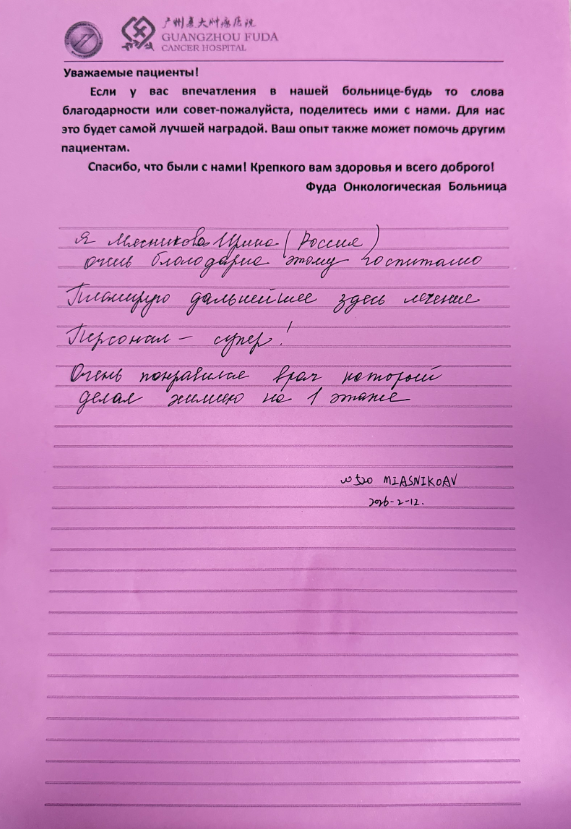 广州复大肿瘤医院
GUANGZHOU FUDA
CANCER HOSPITAL
Уважаемые пациенты!
Если у вас впечатления в нашей больнице-будь то слова
благодарности или совет-пожалуйста, поделитесь ими с нами. Для нас
это будет самой лучшей наградой. Ваш опыт также может помочь другим
пациентам.
Спасибо, что были с нами! Крепкого вам здоровья и всего доброго!
Фуда Онкологическая Больница
Я Мясникова Ирина (Россия)
очень благодарна этому госпиталю
Планирую дальнейшее здесь лечение
Персонал – супер!
Очень понравился врач который
делал химию на 1 этаже
MIASNIKOAV
2026-2-12.